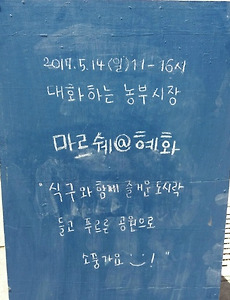 2017.5.14(일)11-16시
대화하는 농부시장
마르쉐@혜화
"식구와 함께 즐거운 도시락
들고 푸르른 공원으로
소풍가요 :)! "